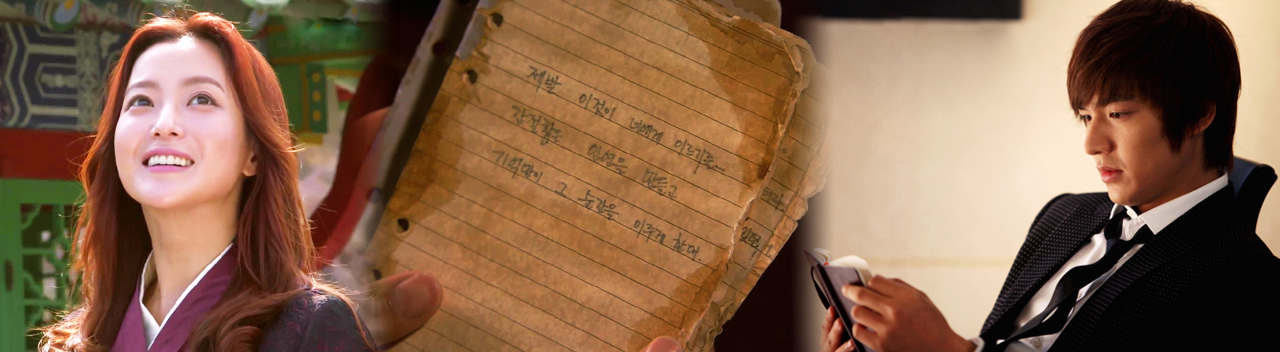 제발 이것이 너에게 이르기를...
간절함은 인연을 만들고
기억만이 그 순간을 이루게 한대.